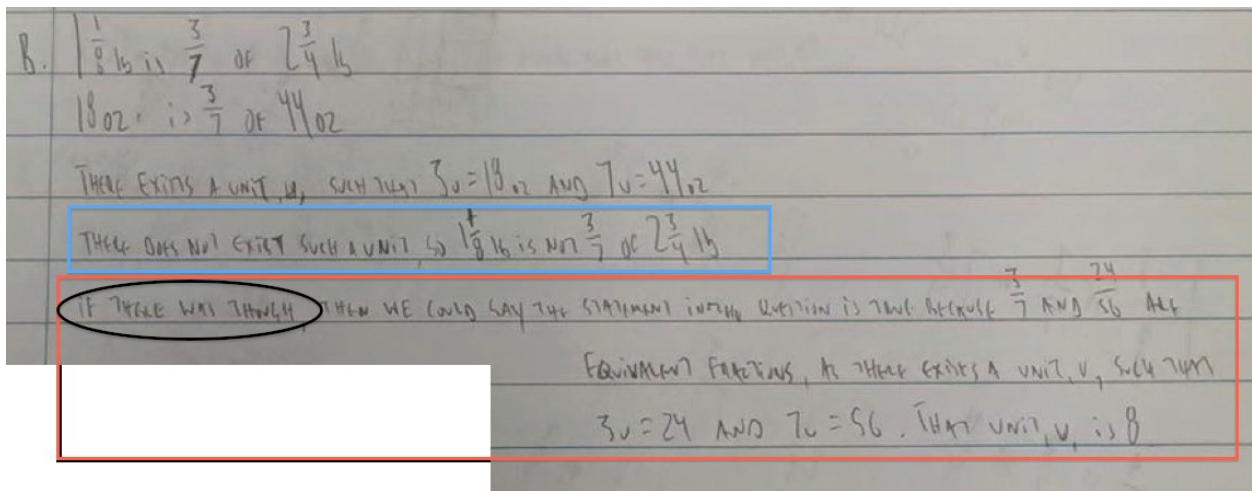 B. 1 1/8 lb is 3/7 of 2 3/4 lb
18 oz. is 3/7 of 44 oz
THERE EXISTS A UNIT, u, SUCH THAT 3u = 18 oz AND 7u = 44 oz
THERE DOES NOT EXIST SUCH A UNIT, SO 1 1/8 lb is NOT 3/7 of 2 3/4 lb
IF THERE WAS THOUGH, THEN WE COULD SAY THE STATEMENT IN THE QUESTION IS TRUE BECAUSE 3/7 AND 24/56 ARE
EQUIVALENT FRACTIONS, AS THERE EXISTS A UNIT, U, SUCH THAT
3u = 24 AND 7u = 56. THAT UNIT, U, is 8